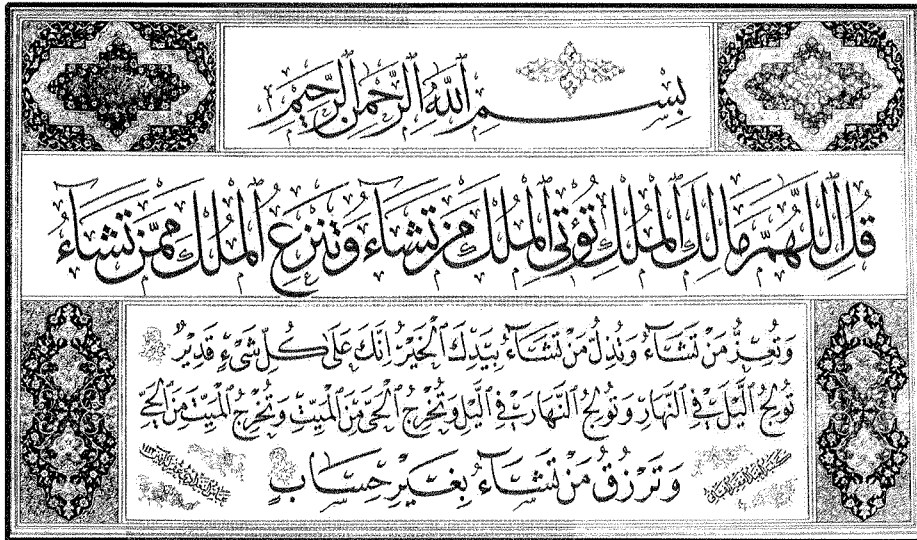 بِسْمِ ٱللَّهِ ٱلرَّحْمَٰنِ ٱلرَّحِيمِ
قُلِ ٱللَّهُمَّ مَالِكَ ٱلْمُلْكِ تُؤْتِى ٱلْمُلْكَ مَنْ تَشَآءُ وَتَنْزِعُ ٱلْمُلْكَ مِمَّنْ تَشَآءُ
وَتُعِزُّ مَنْ تَشَآءُ وَتُذِلُّ مَنْ تَشَآءُ بِيَدِكَ ٱلْخَيْرُ إِنَّكَ عَلَىٰ كُلِّ شَىْءٍ قَدِيرٌ
تُولِجُ ٱلَّيْلَ فِى ٱلنَّهَارِ وَتُولِجُ ٱلنَّهَارَ فِى ٱلَّيْلِ وَتُخْرِجُ ٱلْحَىَّ مِنَ ٱلْمَيِّتِ وَتُخْرِجُ ٱلْمَيِّتَ مِنَ ٱلْحَىِّ
وَتَرْزُقُ مَنْ تَشَآءُ بِغَيْرِ حِسَابٍ